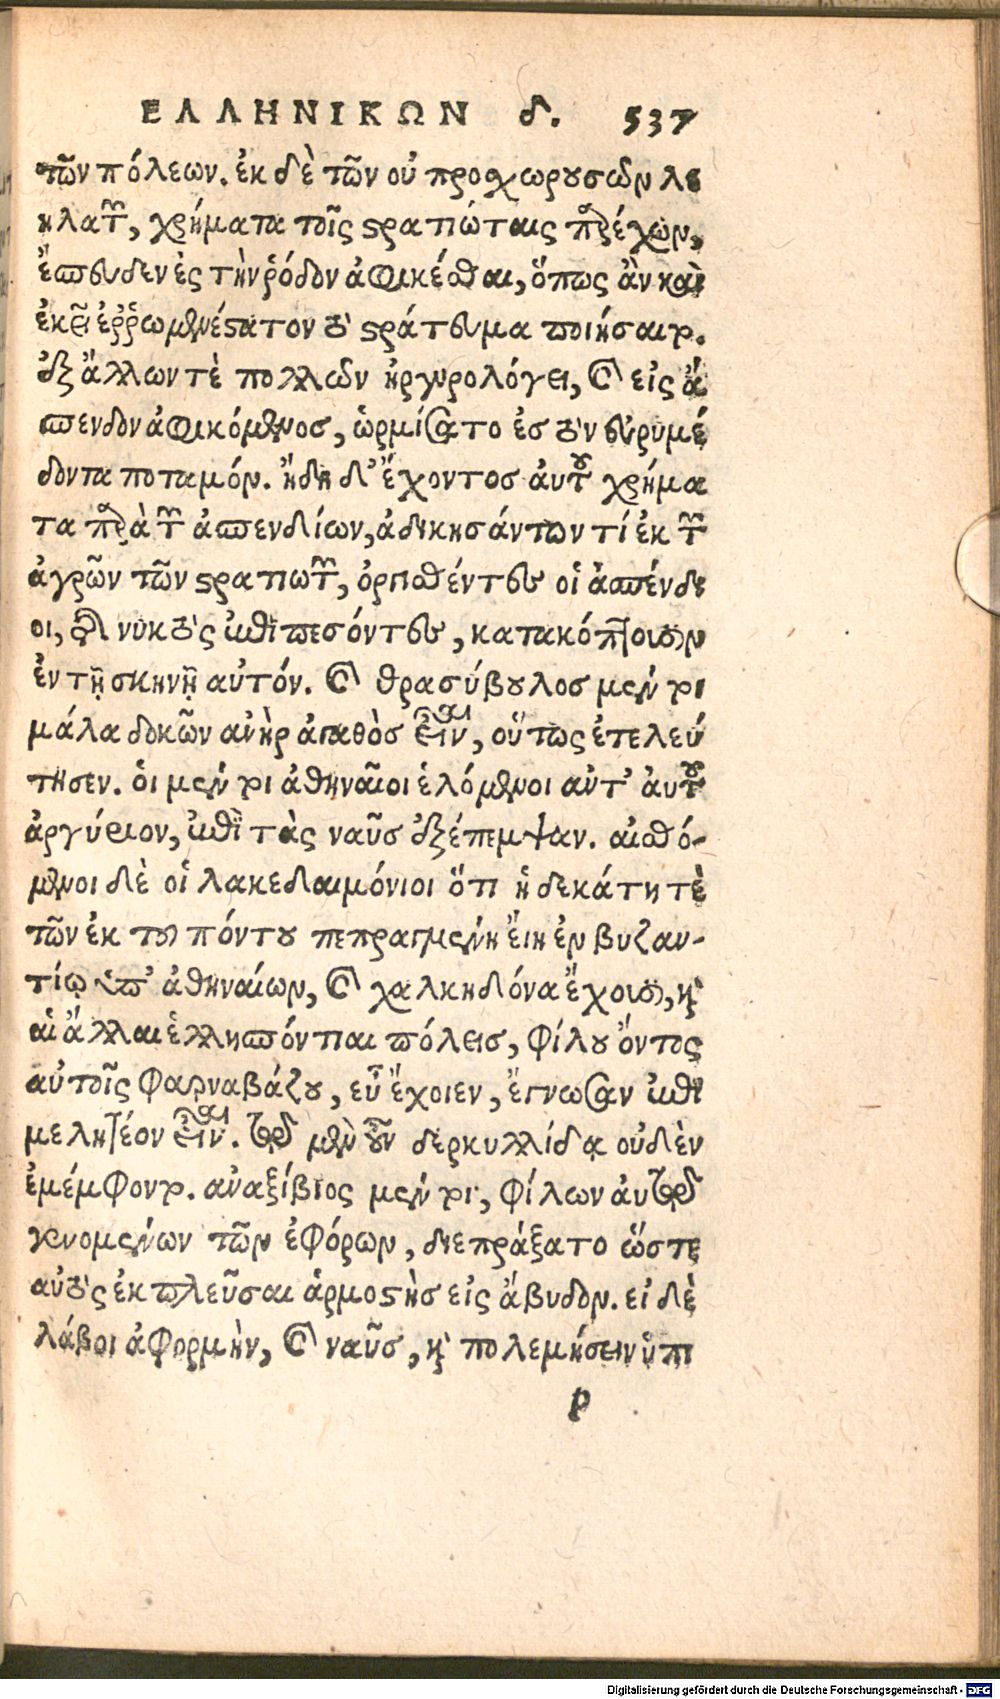 ΕΛΛΗΝΙΚΩΝ δ. 537
τῶν πόλεων. ἐκ δὲ τῶν οὐ προχωρουσῶν λε
ηλατῶν, χρήματα τοῖς στρατιώταις παρέχων,
ἔσπευδεν ἐς τὴν ῥόδον ἀφικέσθαι, ὅπως ἂν καὶ
ἐκεῖ ἐρῥωμενέστατον τὸ στράτευμα ποιήσαιτο.
ἐξ ἄλλων τὲ πολλῶν ἠργυρολόγει, καὶ εἰς ἄ
σπενδον ἀφικόμενος, ὡρμίσατο ἐς τὸν εὐρυμέ
δοντα ποταμόν. ἤδη δ' ἔχοντος ἀυτοῦ χρήμα
τα παρὰ τῶν ἀσπενδίων, ἀδικησάντων τί ἐκ τῶν
ἀγρῶν τῶν στρατιωτῶν, ὀργισθέντες οἱ ἀσπένδι
οι, τῆς νυκτὸς ἐπιπεσόντες, κατακόπτουσιν
ἐν τῇ σκηνῇ αὐτόν. καὶ θρασύβουλος μέντοι
μάλα δοκῶν ἀνὴρ ἀγαθὸς εἶναι, οὕτως ἐτελεύ
τησεν. ὁι μέντοι ἀθηναῖοι ἑλόμενοι ἀντ' ἀυτοῦ
ἀργύριον, ἐπὶ τὰς ναῦς ἐξέπεμψαν. αἰσθό-
μενοι δὲ οἱ λακεδαιμόνιοι ὅτι ἡ δεκάτη τὲ
τῶν ἐκ τοῦ πόντου πεπραγμένη ἔιη ἐν βυζαν-
τίῳ ὑπ' ἀθηναίων, καὶ χαλκηδόνα ἔχουσι, καὶ
αἱ ἄλλαι ἑλλησπόντιαι πόλεις, φίλου ὄντος
αὐτοῖς φαρναβάζου, εὖ ἔχοιεν, ἔγνωσαν ἐπι
μελητέον εἶναι. τῷ μὲν οὖν δερκυλλίδᾳ οὐδὲν
ἐμέμφοντο. ἀναξίβιος μέντοι, φίλων ἀυτῷ
γενομένων τῶν ἐφόρων, διεπράξατο ὥστε
αὐτὸς ἐκπλεῦσαι ἁρμοστὴς εἰς ἄβυδον. εἰ δὲ
λάβοι ἀφορμὴν, καὶ ναῦς, καὶ πολεμήσειν ὑπι
ρ
Digitalisierung gefördert durch die Deutsche Forschungsgemeinschaft - DFG